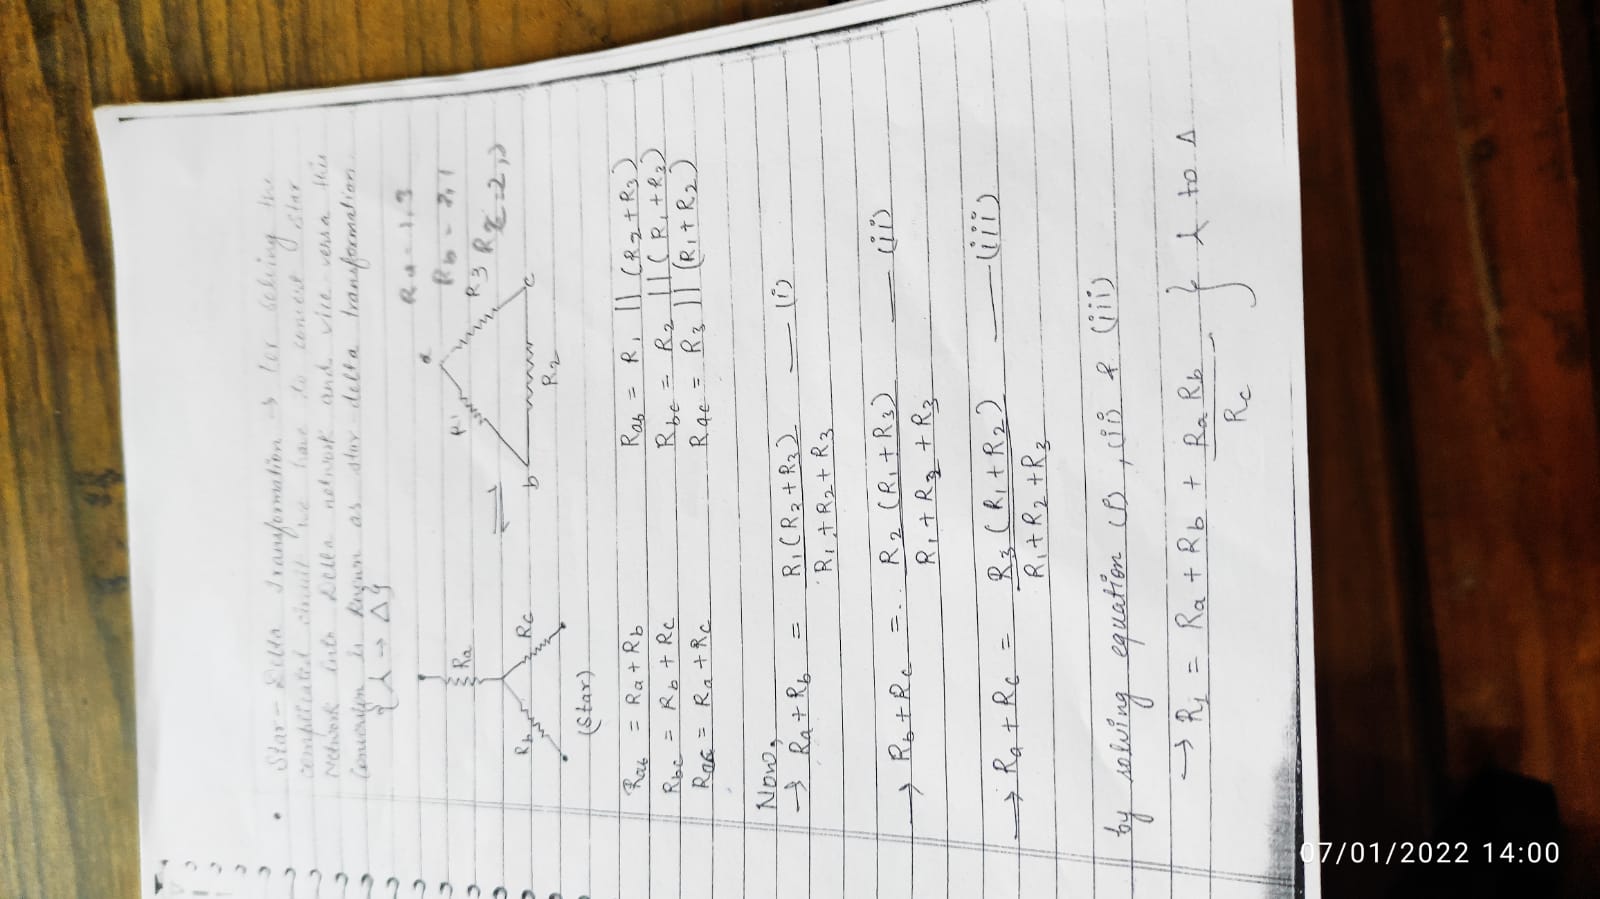 • Star - Delta Transformation → for solving the
complicated circuit we have to convert star
Network into Delta network and vice versa this
conversion is known as star-delta transformation.
{⅄ → Δ}
Ra = 1,3
Rb = 2,1
Ra
Rb
Rc
(Star)
⇌
a
R1
R3
b
R2
c
Rab = Ra + Rb
Rab = R1 || (R2 + R3)
Rbc = Rb + Rc
Rbc = R2 || (R1 + R3)
Rac = Ra + Rc
Rac = R3 || (R1 + R2)
Now,
→ Ra + Rb = R1 (R2 + R3) — (i)
R1 + R2 + R3
→ Rb + Rc = R2 (R1 + R3) — (ii)
R1 + R2 + R3
→ Ra + Rc = R3 (R1 + R2) — (iii)
R1 + R2 + R3
by solving equation (i), (ii) & (iii)
→ R1 = Ra + Rb + Ra Rb } ⅄ to Δ
Rc
07/01/2022 14:00